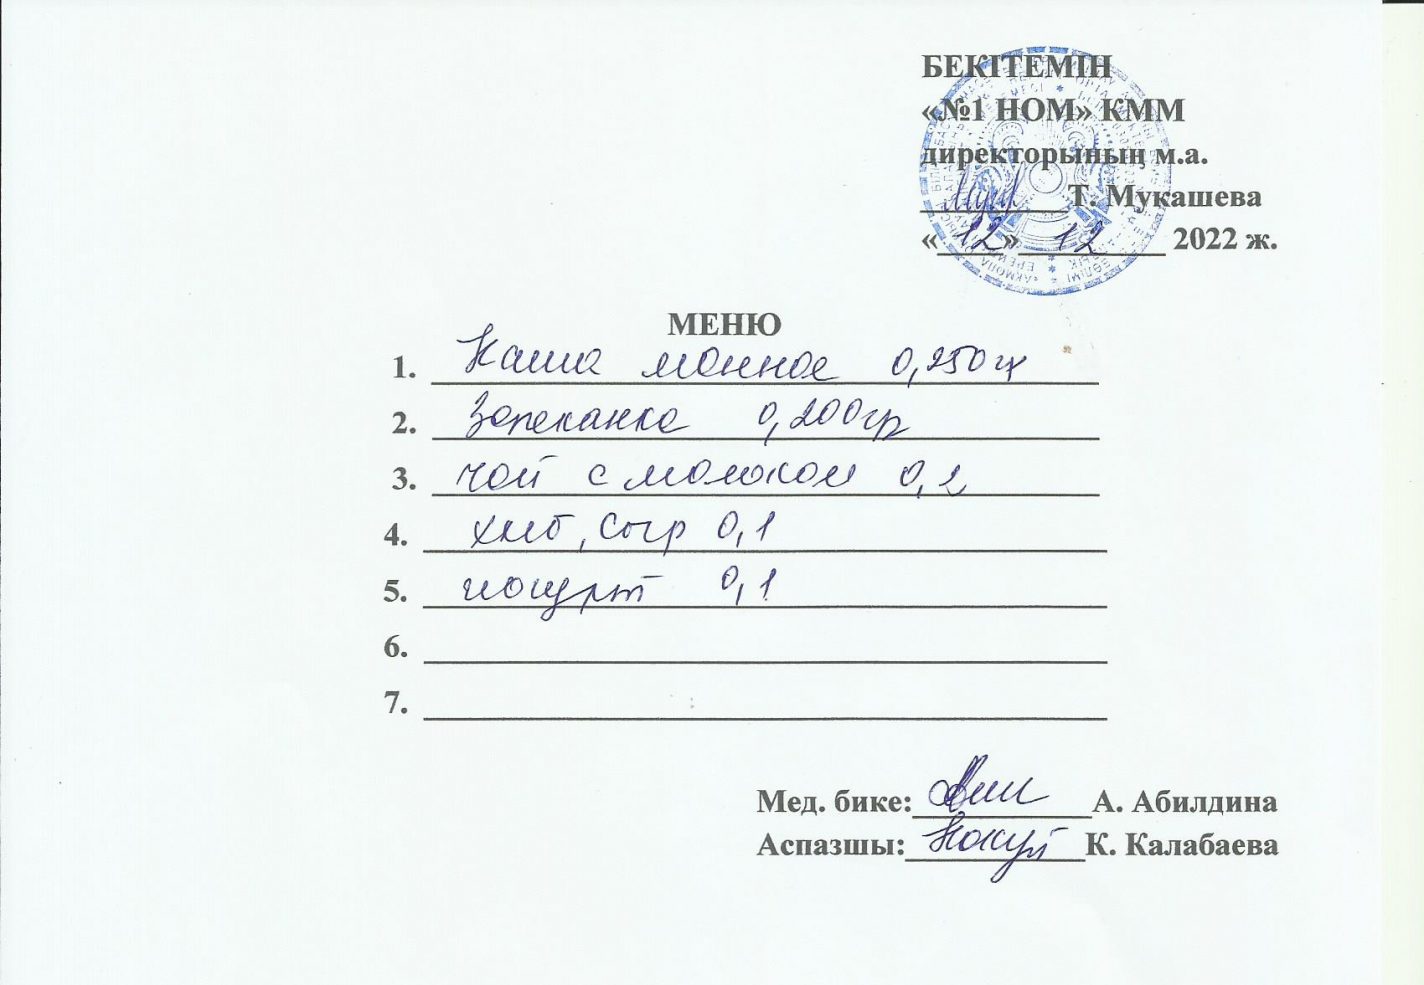 БЕКІТЕМІН
«№1 НОМ» КММ
директорының м.а.
Т. Мукашева
«12» 12 2022 ж.
МЕНЮ
1. Каша манное 0,250гр
2. Запеканка 0,200гр
3. чай с молоком 0,2
4. хлеб, сыр 0,1
5. йогурт 0,1
6.
7.
Мед. бике: А. Абилдина
Аспазшы: К. Калабаева